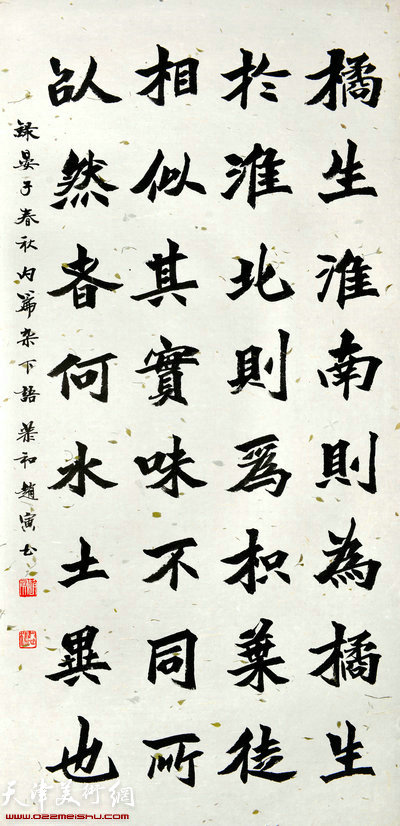 橘生淮南則為橘生
於淮北則爲枳葉徒
相似其實味不同所
以然者何水土異也
錄晏子春秋內篇杂下語 葉和趙寅书
天津美術網
www.ozzmeishu.com